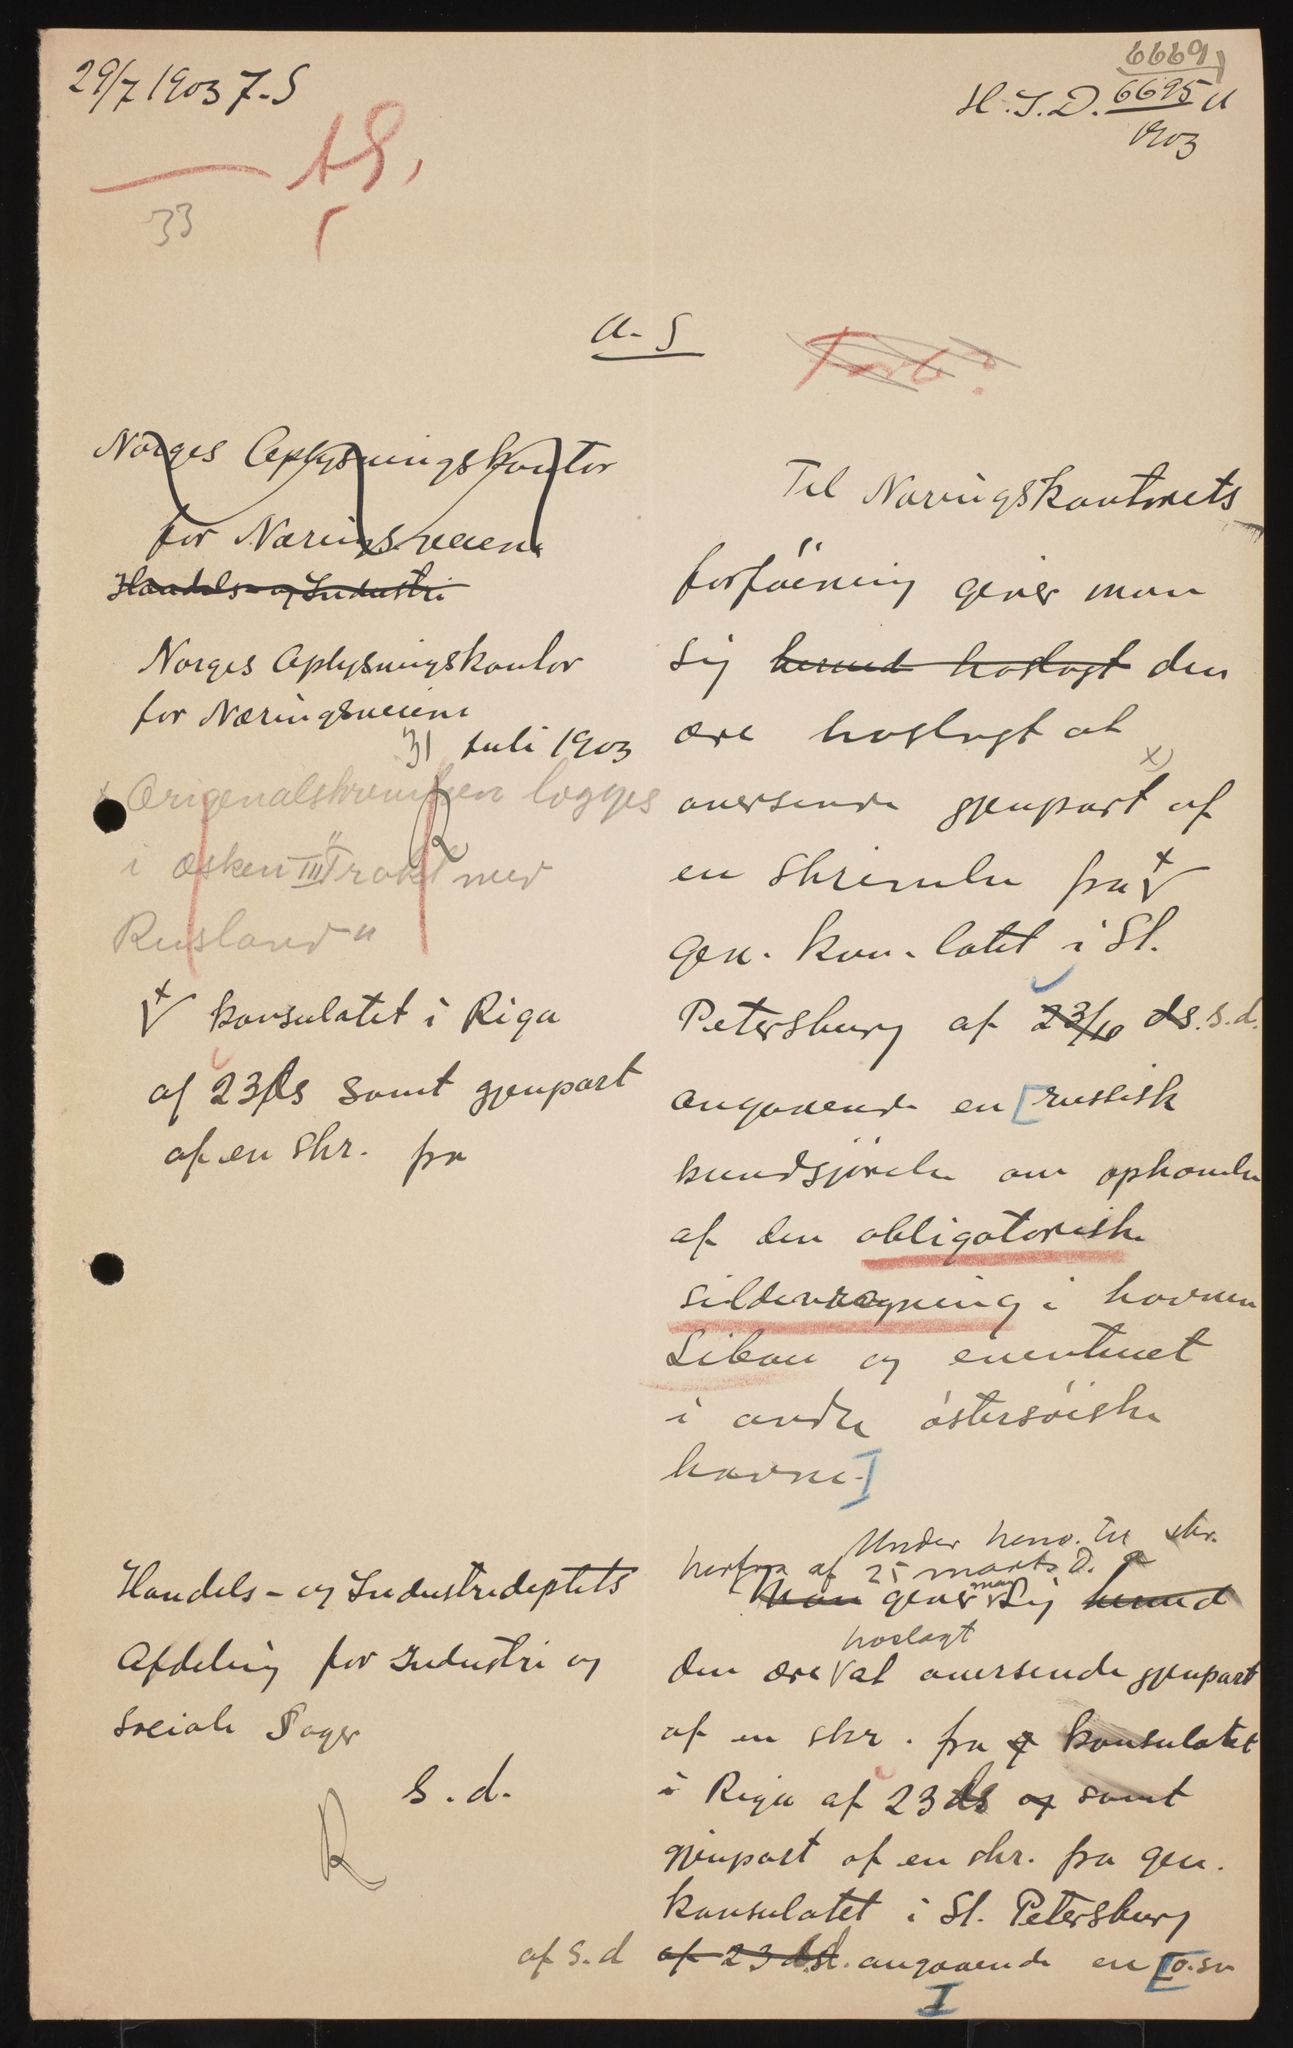 29/7 1903 7-S
6669
H.I.D. 6695 U
1903
AS,
33
a-S
Norges Oplysningskontor
for Næringsveiene
Handels- og Industri
Norges Oplysningskontor
for Næringsveiene
31 Juli 1903
x Originalskrivelsen lægges
i æsken III "Trakt. med
Rusland"
R
konsulatet i Riga
af 23/ds samt gjenpart
af en skr. fra
Til Næringskontorets
forföining giver man
sig herved hoslagt den
ære hoslagt at
oversende gjenpart x) af
en skrivelse fra
gen. kon-latet i St.
Petersburg af 23/ ds. s.d.
angaaende en [russisk
kundgjörelse om ophævelse
af den obligatoriske
sildevragning i havnen
Libau og eventuelt
i andre östersöiske
havne.]
Handels- og Industrideptets
Afdeling for Industri og
sociale Sager
s.d.
R
Under henv. til skr.
herfra af 25 marts d. a
Man giver man sig herved
hoslagt
den ære at oversende gjenpart
af en skr. fra g konsulatet
i Riga af 23 ds og samt
gjenpart af en skr. fra gen.
konsulatet i St. Petersburg
af s.d af 23 ds. angaaende en [o.sv
I